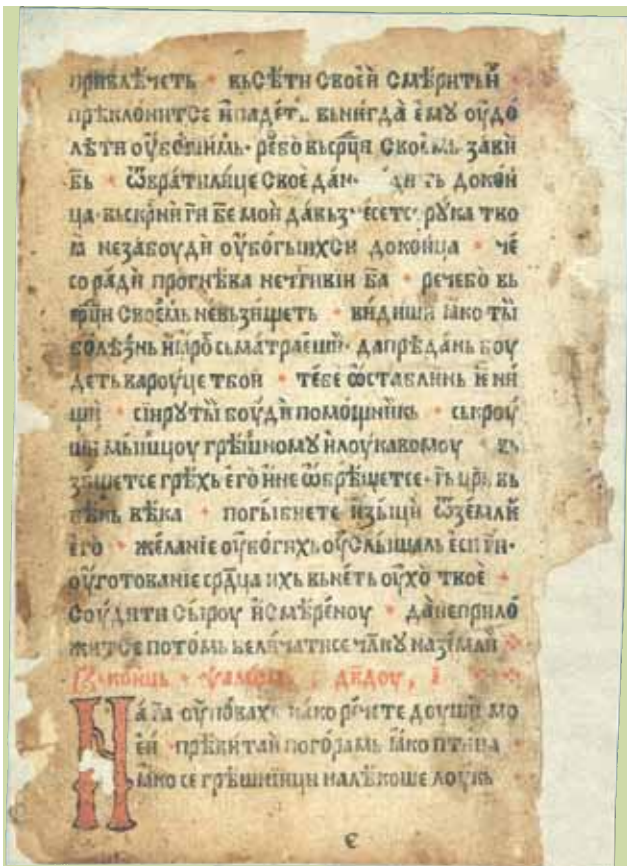 привлѣчеть • вьсѣти своей смѣритьй
прѣклонитсе ѝпадѐть. вьнигда̀ ѐмꙋ оу҆до
лѣти оу҆богіимь • ре҆бо вьср҃ци своемь забѝ
бь • ѿвратилице своѐ да̀ не докон
ца • вьскр҃нѝ ги҃ бе҃ мой да̀ рꙋка тво
ꙗ̀ незабоудѝ оу҆богыихси доконца • че
со ра́дѝ прогнѣва нечтивіи ба҃ • речебо̀ вь
ср҃ци своемь невьзищеть • видиши ꙗко ты̀
болѣзнь ѝꙗ҆ро̑ сьматраешѝ • дапрѣда̀нь боу
деть вароуце твоѝ • тебѐ ѡ҆ставлѥнь ѐ ни
щи • сирꙋ ты̀ боудѝ помощникь • ськроу
ши мышцоу грѣшномꙋ ѝлоукавомоу • вь
зыщетсе грѣхь ѐго ѝне ѡ҆брѣщетсе • г҃ь цр҃ь вь
вѣкь вѣка • погыбнете ѐзыци ѿземлѥ
ѐго • желаніе оу҆богихь оу҆слышаль ѐси ги҃ •
оу҆готованіе ср҃дца ихь вьнеть оу҆хо̀ твоѐ •
соудити сыроу ѝсмѣреноу • да̀неприло
житсе потомь величатисе чл҃кꙋ наземлѝ
Вьконць • ѱалomь, д҃вдоу, і҃
На̀ г҃а оу҆повахь како речете доушѝ мо
ѐй • прѣвитай погорамь ꙗко птица •
ꙗко се грѣшници налѣкоше лоукь
є